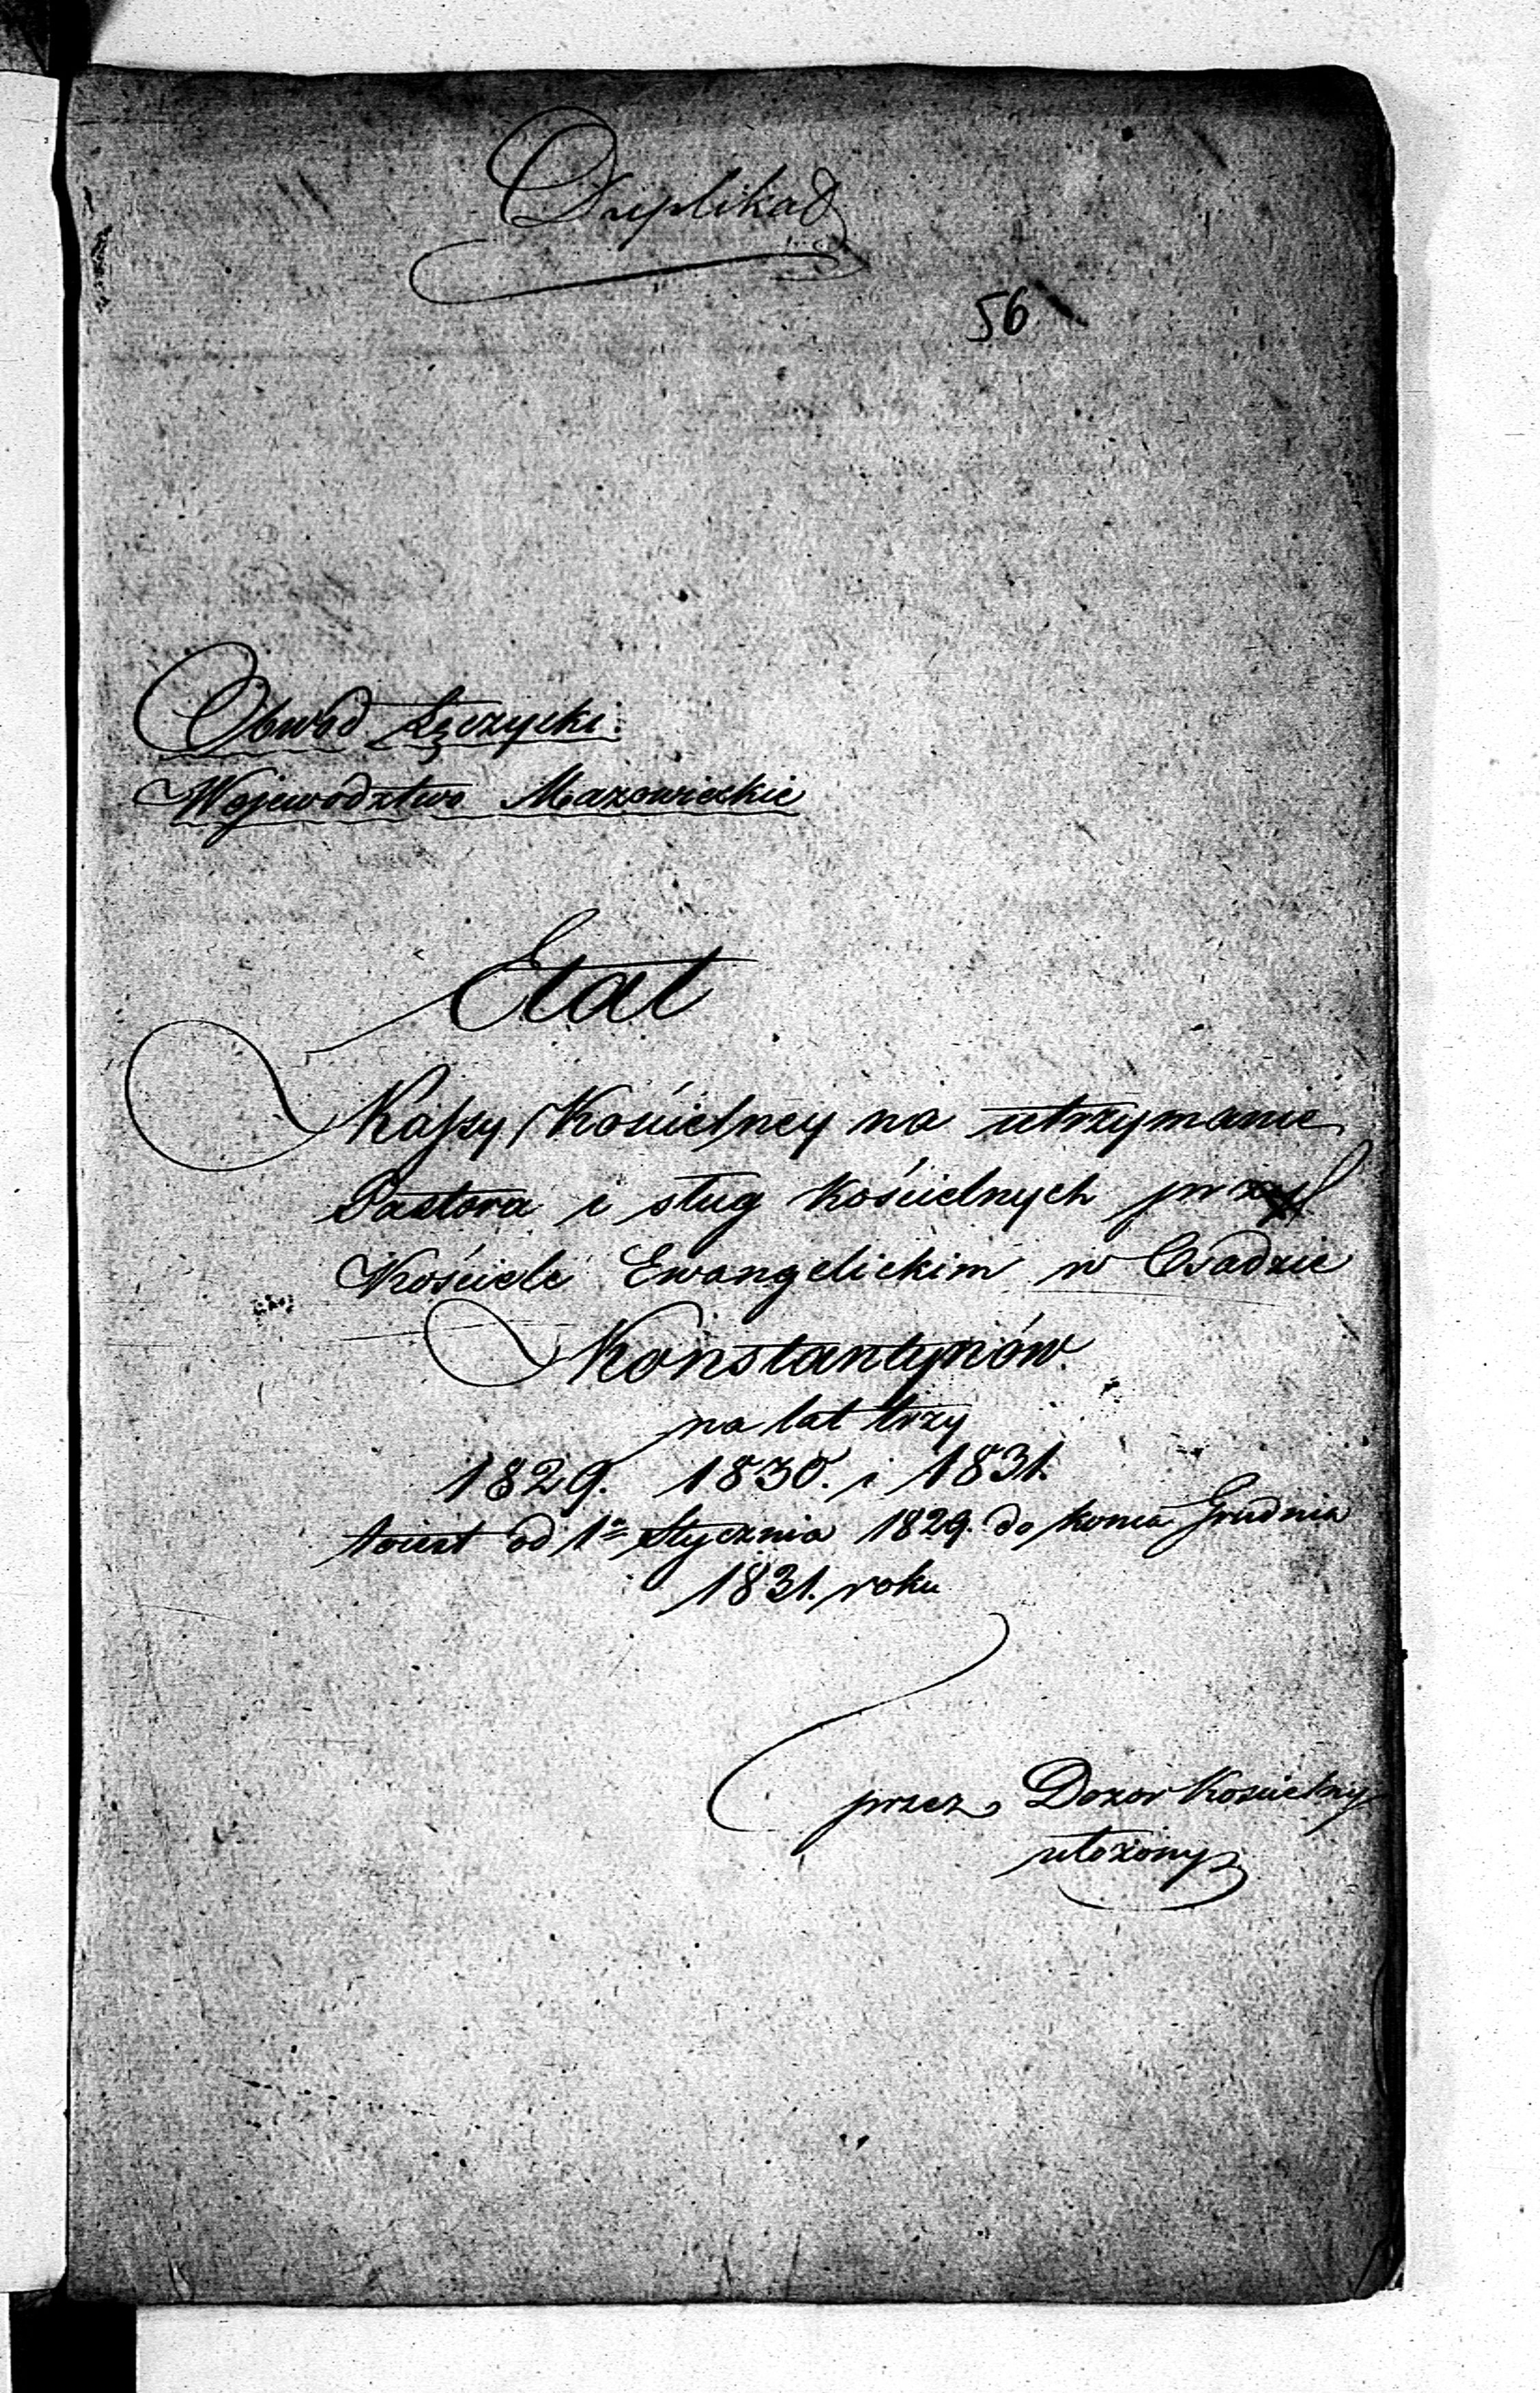 Duplikad
56
Obwód Łęczycki.
Woiewodztwo Mazowieckie
Etat
Kassy Kościelney na utrzymanie
Pastora i sług Kościelnych przy
Kościele Ewangelickim w Osadzie
Konstantynów.
na lat trzy
1829. 1830. i 1831.
toiest od 1º Stycznia 1829. do konca Grudnia
1831. roku
przez Dozor Koscielny
ułożony